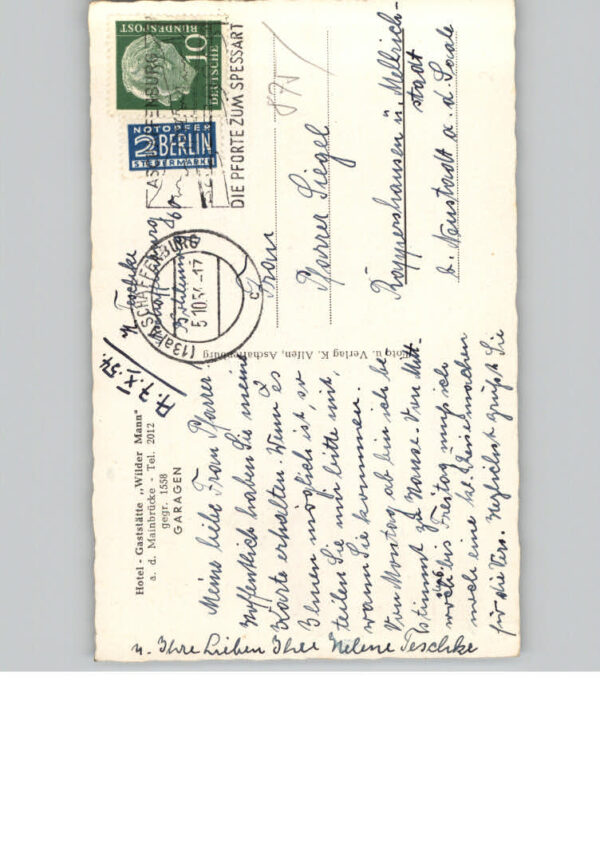 Hotel - Gaststätte „Wilder Mann"
a. d. Mainbrücke - Tel. 2012
gegr. 1558
GARAGEN
A. 7.X.54.
Meine liebe Frau Pfarrer,
Hoffentlich haben Sie meine
Karte erhalten. Wenn es
Ihnen möglich ist, so
teilen Sie mir bitte mit,
wann Sie kommen.
Von Montag ab bin ich be
stimmt zu Hause. Von Mitt-
woch bis Freitag muß ich
noch eine kl. Reise machen
für die Vers. Herzlichst grüßt Sie
u. Ihre Lieben Ihre Helene Teschke
Photo u. Verlag K. Alfen, Aschaffenburg
Teschke
Aschaffenburg
DEUTSCHE BUNDESPOST
10
NOTOPFER
2 BERLIN
STEUERMARKE
ASCHAFFENBURG
DIE PFORTE ZUM SPESSART
(13a) ASCHAFFENBURG
5.10.54.-17
c
875
Frau
Pfarrer Siegel
Rappershausen ü. Mellrich-
stadt
b. Neustadt a. d. Saale